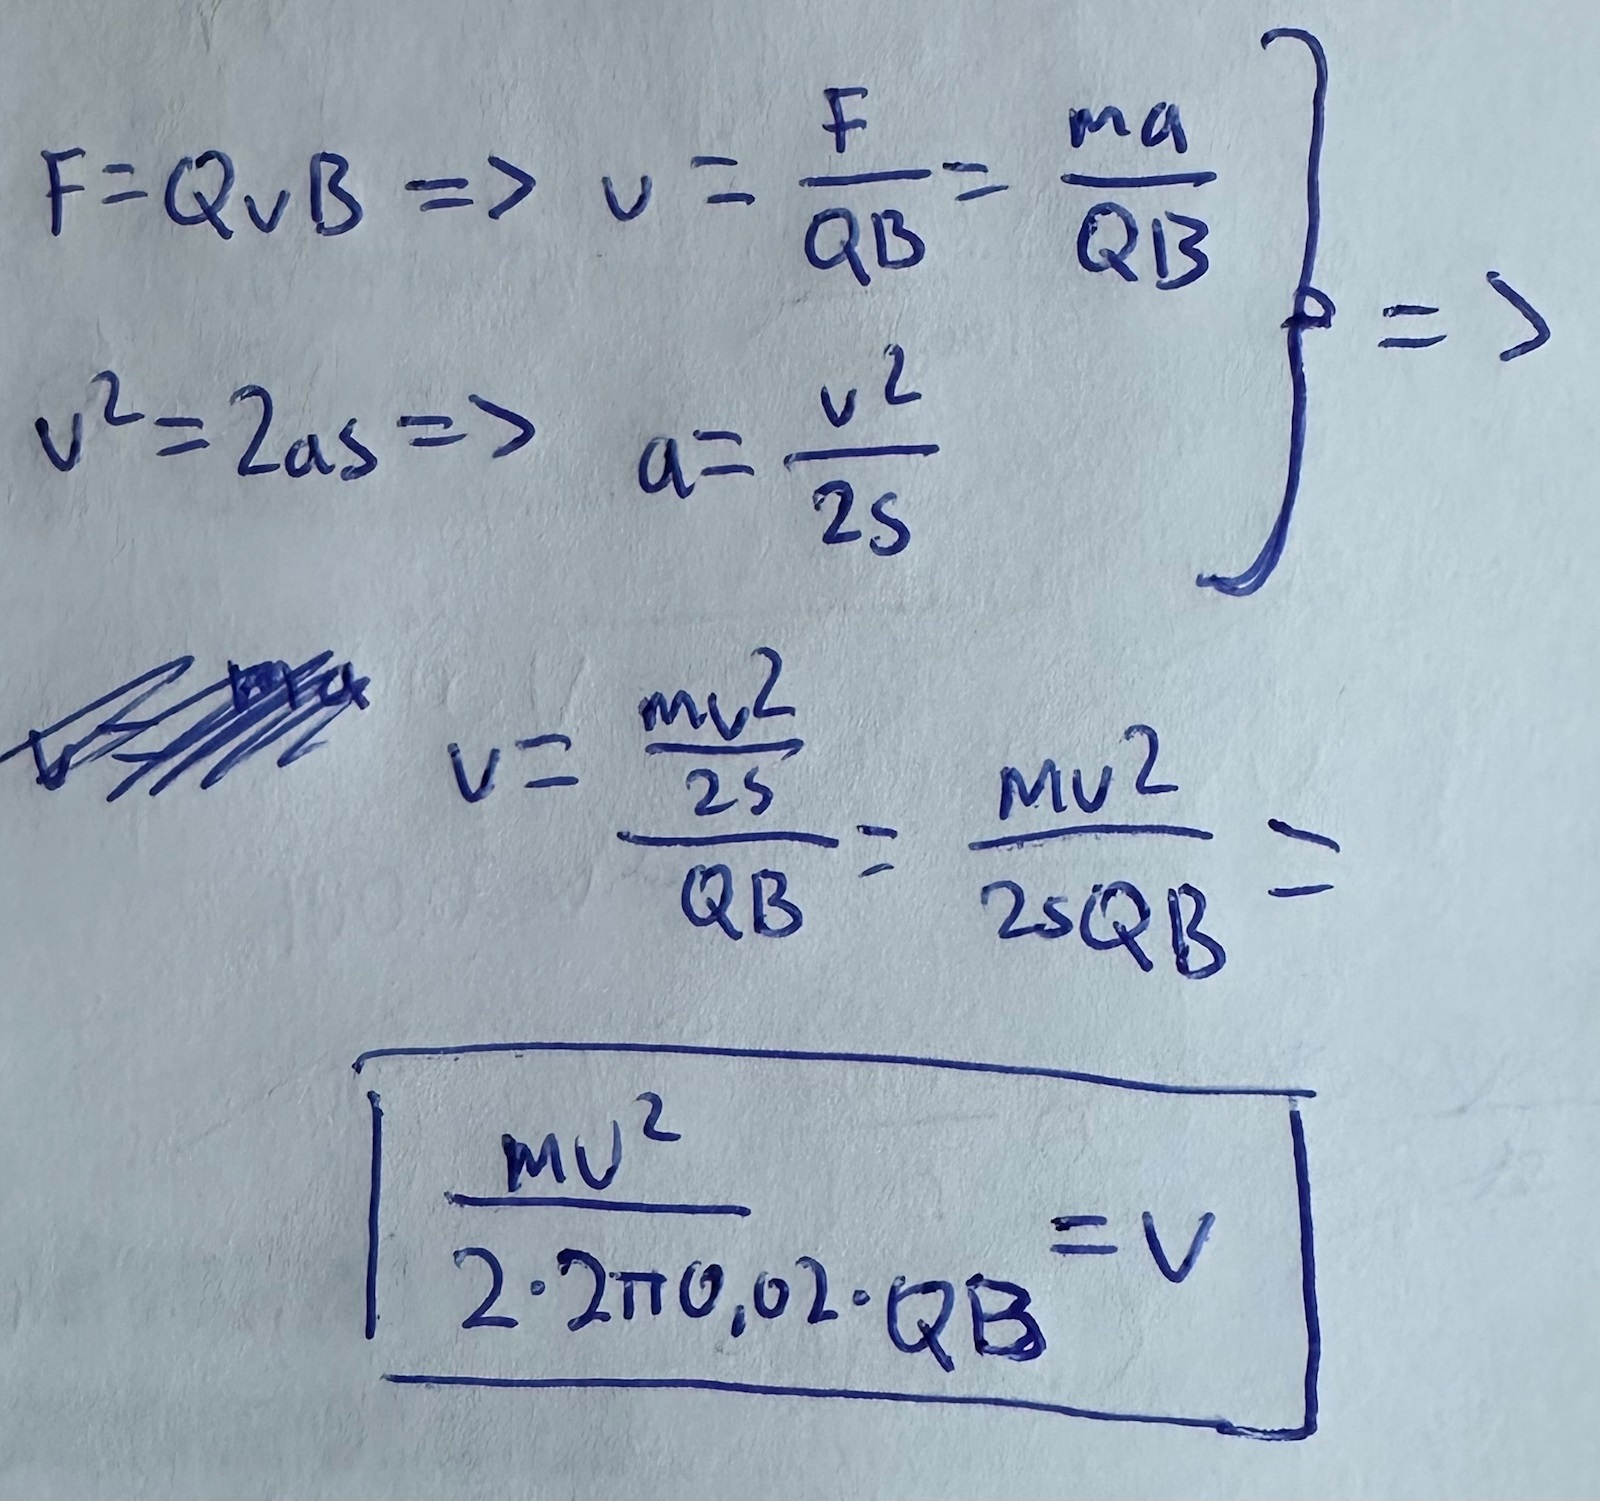 F = QvB => v = F/QB = ma/QB
v² = 2as => a = v²/2s } =>
v = (mv²/2s)/QB = mv²/2sQB =
mv²/2·2π0,02·QB = v